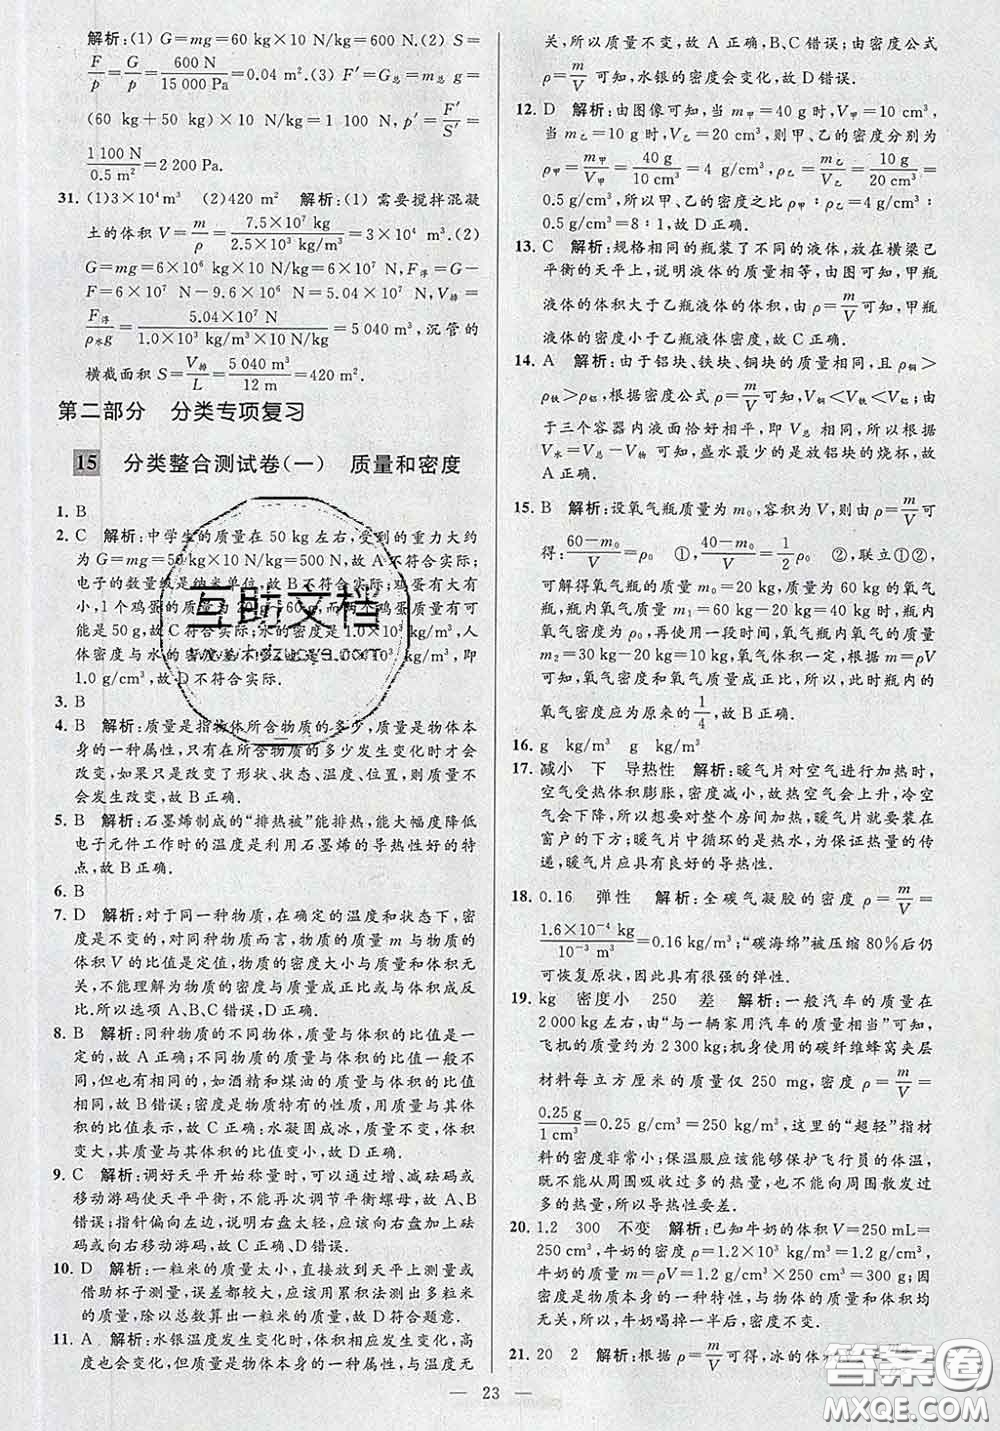 解析:(1) G=mg=60 kg×10 N/kg=600 N.(2) S=
F/p=G/p=600 N/15 000 Pa=0.04 m².(3) F′=G总=m总 g=
(60 kg+50 kg)×10 N/kg=1 100 N,p′=F′/S′=
1 100 N/0.5 m²=2 200 Pa.
31. (1)3×10⁴m³ (2)420 m² 解析:(1) 需要搅拌混凝
土的体积 V=m/ρ=7.5×10⁷ kg/2.5×10³ kg/m³=3×10⁴ m³.(2)
G=mg=6×10⁶ kg×10 N/kg=6×10⁷ N,F浮=
G-F=6×10⁷ N-9.6×10⁶ N=5.04×10⁷ N,V排=
F浮/ρ水g=5.04×10⁷ N/1.0×10³ kg/m³×10 N/kg=5 040 m³,沉管的
横截面积 S=V排/L=5 040 m³/12 m=420 m².
第二部分 分类专项复习
15 分类整合测试卷(一) 质量和密度
1. B
2. C 解析:中学生的质量在 50 kg 左右,受到的重力大约
为 G=mg=50 kg×10 N/kg=500 N,故 A 不符合实际;
电子的数量级是纳米单位,故 B 不符合实际;鸡蛋有大有
小,1 个鸡蛋的质量为 20 g~60 g,有的鸡蛋质量有可
能是 50 g,故 C 符合实际;水的密度是 1.0×10³ kg/m³,人
体密度与水的密度差不多,也是 1.0×10³ kg/m³,即
1.0 g/cm³,故 D 不符合实际.
3. B
4. B 解析:质量是指物体所含物质的多少,质量是物体本
身的一种属性,只有在所含物质的多少发生变化时才会
改变,如果只是改变了形状、状态、温度、位置,则质量不
会发生改变,故 B 正确.
5. B 解析:石墨烯制成的“排热被”能排热,能大幅度降低
电子元件工作时的温度是利用石墨烯的导热性好的特
点,故 B 正确.
6. B
7. D 解析:对于同一种物质,在确定的温度和状态下,密
度是不变的,对同种物质而言,物质的质量 m 与物质的
体积 V 的比值是定值,物质的密度大小与质量和体积无
关,不能理解为物质的密度与质量成正比或与体积成反
比.所以选项 A、B、C 错误,D 正确.
8. B 解析:同种物质的不同物体,质量与体积的比值是一
定的,故 A 正确;不同物质的质量与体积的比值一般不
同,也有相同的,如酒精和煤油的质量与体积的比值
相同,故 B 错误;密度是物质特有的性质,用质量与其体
积的比值表示,故 C 正确;水凝固成冰,质量不变,体积变
大,其质量与其体积的比值变小,故 D 正确.
9. C 解析:调好天平开始称量时,可以通过增、减砝码或
移动游码使天平平衡,不能再次调节平衡螺母,故 A、B
错误;指针偏向左边,说明右盘太轻,应该向右盘中加上砝
码或向右移动游码,故 C 正确、D 错误.
10. D 解析:一粒米的质量太小,直接放到天平上测量或
借助杯子测量,误差都较大,应该用累积法测出多粒米
的质量,除以总数算出一粒米的质量,故 D 符合题意.
11. A 解析:水银温度发生变化时,体积相应发生变化,高
度也会变化,但质量是物体本身的一种属性,与温度无
关,所以质量不变,故 A 正确,B、C 错误;由密度公式
ρ=m/V可知,水银的密度会变化,故 D 错误.
12. D 解析:由图像可知,当 m甲=40 g 时,V甲=10 cm³,
当 m乙=10 g 时,V乙=20 cm³,则甲、乙的密度分别为
ρ甲=m甲/V甲=40 g/10 cm³=4 g/cm³,ρ乙=m乙/V乙=10 g/20 cm³=
0.5 g/cm³,所以甲、乙的密度之比 ρ甲∶ρ乙=4 g/cm³∶
0.5 g/cm³=8∶1,故 D 正确.
13. C 解析:规格相同的瓶装了不同的液体,放在横梁已
平衡的天平上,说明液体的质量相等,由图可知,甲瓶
液体的体积大于乙瓶液体的体积,由 ρ=m/V可知,甲瓶
液体的密度小于乙瓶液体密度,故 C 正确.
14. A 解析:由于铝块、铁块、铜块的质量相同,且 ρ铜>
ρ铁>ρ铝,根据密度公式 ρ=m/V可知 V铜<V铁<V铝,
由于三个容器内液面恰好相平,即 V总 相同,由于
V水=V总-V物质可知,盛水最少的是放铝块的烧杯,故
A 正确.
15. B 解析:设氧气瓶质量为 m₀,容积为 V,由 ρ=m/V可
得:60-m₀/V=ρ₀ ①,40-m₀/V=1/2ρ₀ ②,联立①②,
可解得氧气瓶的质量 m₀=20 kg,质量为 60 kg 的氧气
瓶,瓶内氧气质量 m₁=60 kg-20 kg=40 kg,瓶内氧气
密度为 ρ₀.再使用一段时间,氧气瓶内氧气的质量
m₂=30 kg-20 kg=10 kg,氧气体积一定,根据 m=ρV
可知,氧气质量和密度成正比,所以,此时瓶内的
氧气密度应为原来的1/4,故 B 正确.
16. g kg/m³ g kg/m³
17. 减小 下 导热性 解析:暖气片对空气进行加热时,
空气受热体积膨胀,密度减小,故热空气会上升,冷空
气会下降,所以想要对整个房间加热,暖气片要装在
窗户的下方;暖气片中循环的是热水,为保证热量的
传导,暖气片应具有良好的导热性.
18. 0.16 弹性 解析:全碳气凝胶的密度 ρ=m/V=
1.6×10⁻⁴ kg/10⁻³ m³=0.16 kg/m³;“碳海绵”被压缩 80%后仍
可恢复原状,因此具有很强的弹性.
19. kg 密度小 250 差 解析:一般汽车的质量在
2 000 kg 左右,由“与一辆家用汽车的质量相当”可知,
飞机的质量约为 2 300 kg;机身使用的碳纤维蜂窝夹层
材料每立方厘米的质量仅 250 mg,密度 ρ=m/V=
0.25 g/1 cm³=0.25 g/cm³=250 kg/m³,这里的“超轻”指材
料的密度非常小;保温服应该能够保护飞行员的体温,
既不能从周围吸收过多的热量,也不能向周围散发过
多的热量,所以导热性要差.
20. 1.2 300 不变 解析:已知牛奶的体积 V=250 mL=
250 cm³,牛奶的密度 ρ=1.2×10³ kg/m³=1.2 g/cm³,
牛奶的质量 m=ρV=1.2 g/cm³×250 cm³=300 g;因
密度是物质本身的一种特性,与物质的质量和体积均
无关,所以,牛奶喝掉一半后,密度不变.
21. 20 2 解析:根据 ρ=m/V可得,冰的体
23
互助文档
答案圈
MXQE.COM